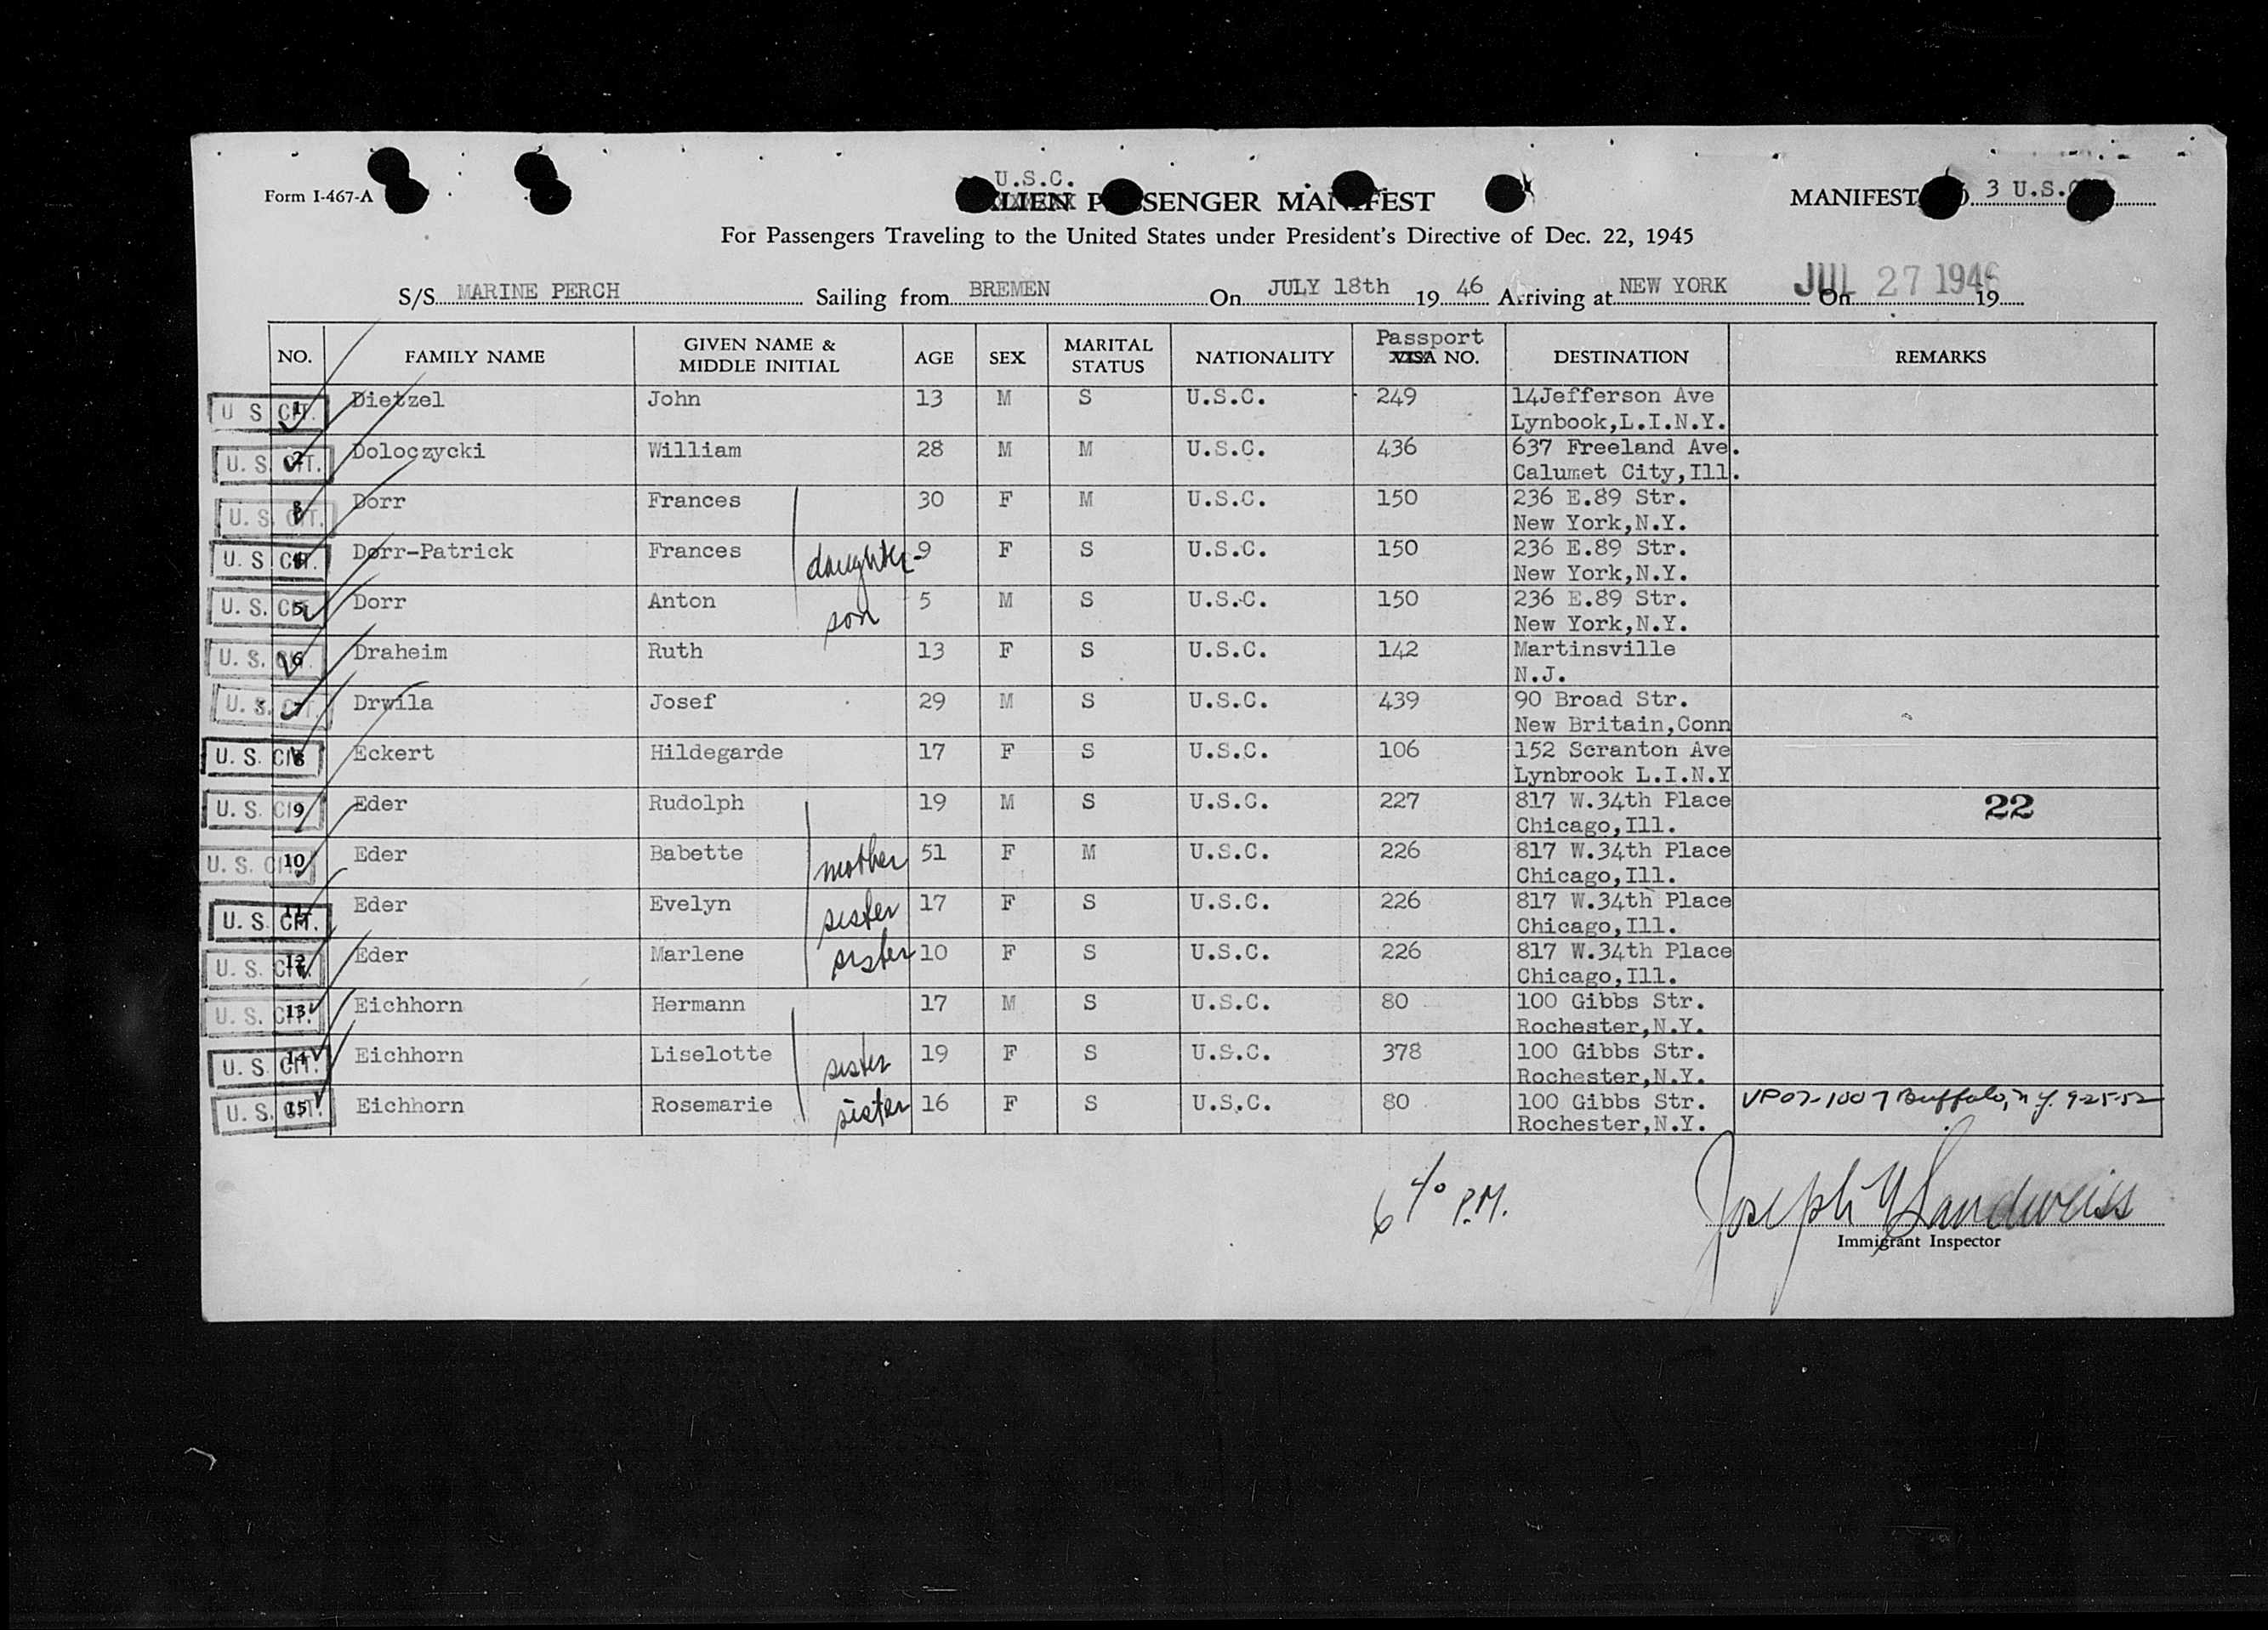 Form I-467-A
U.S.C.
ALIEN PASSENGER MANIFEST
MANIFEST NO. 3 U.S.C.
For Passengers Traveling to the United States under President's Directive of Dec. 22, 1945
S/S MARINE PERCH Sailing from BREMEN On JULY 18th 19 46 Arriving at NEW YORK On JUL 27 1946 19
NO. FAMILY NAME GIVEN NAME & MIDDLE INITIAL AGE SEX MARITAL STATUS NATIONALITY Passport VISA NO. DESTINATION REMARKS
U. S. CIT. 1 Dietzel John 13 M S U.S.C. 249 14Jefferson Ave
Lynbook,L.I.N.Y.
U. S. CIT. 2 Doloczycki William 28 M M U.S.C. 436 637 Freeland Ave.
Calumet City,Ill.
U. S. CIT. 3 Dorr Frances 30 F M U.S.C. 150 236 E.89 Str.
New York,N.Y.
U. S. CIT. 4 Dorr-Patrick Frances daughter 9 F S U.S.C. 150 236 E.89 Str.
New York,N.Y.
U. S. CIT. 5 Dorr Anton son 5 M S U.S.C. 150 236 E.89 Str.
New York,N.Y.
U. S. CIT. 6 Draheim Ruth 13 F S U.S.C. 142 Martinsville
N.J.
U. S. CIT. 7 Drwila Josef 29 M S U.S.C. 439 90 Broad Str.
New Britain,Conn
U. S. CIT. 8 Eckert Hildegarde 17 F S U.S.C. 106 152 Scranton Ave
Lynbrook L.I.N.Y
U. S. CIT. 9 Eder Rudolph 19 M S U.S.C. 227 817 W.34th Place 22
Chicago,Ill.
U. S. CIT. 10 Eder Babette mother 51 F M U.S.C. 226 817 W.34th Place
Chicago,Ill.
U. S. CIT. 11 Eder Evelyn sister 17 F S U.S.C. 226 817 W.34th Place
Chicago,Ill.
U. S. CIT. 12 Eder Marlene sister 10 F S U.S.C. 226 817 W.34th Place
Chicago,Ill.
U. S. CIT. 13 Eichhorn Hermann 17 M S U.S.C. 80 100 Gibbs Str.
Rochester,N.Y.
U. S. CIT. 14 Eichhorn Liselotte sister 19 F S U.S.C. 378 100 Gibbs Str.
Rochester,N.Y.
U. S. CIT. 15 Eichhorn Rosemarie sister 16 F S U.S.C. 80 100 Gibbs Str. Buffalo, n.y.
Rochester,N.Y.
6 40 P.M.
Joseph Sandweiss
Immigrant Inspector